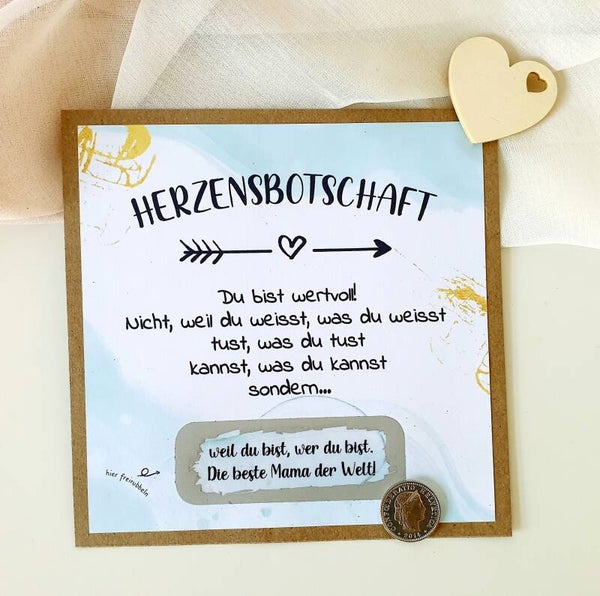 HERZENSBOTSCHAFT
Du bist wertvoll!
Nicht, weil du weisst, was du weisst
tust, was du tust
kannst, was du kannst
sondern...
weil du bist, wer du bist.
Die beste Mama der Welt!
hier freirubbeln
CONFOEDERATIO HELVETICA
2014